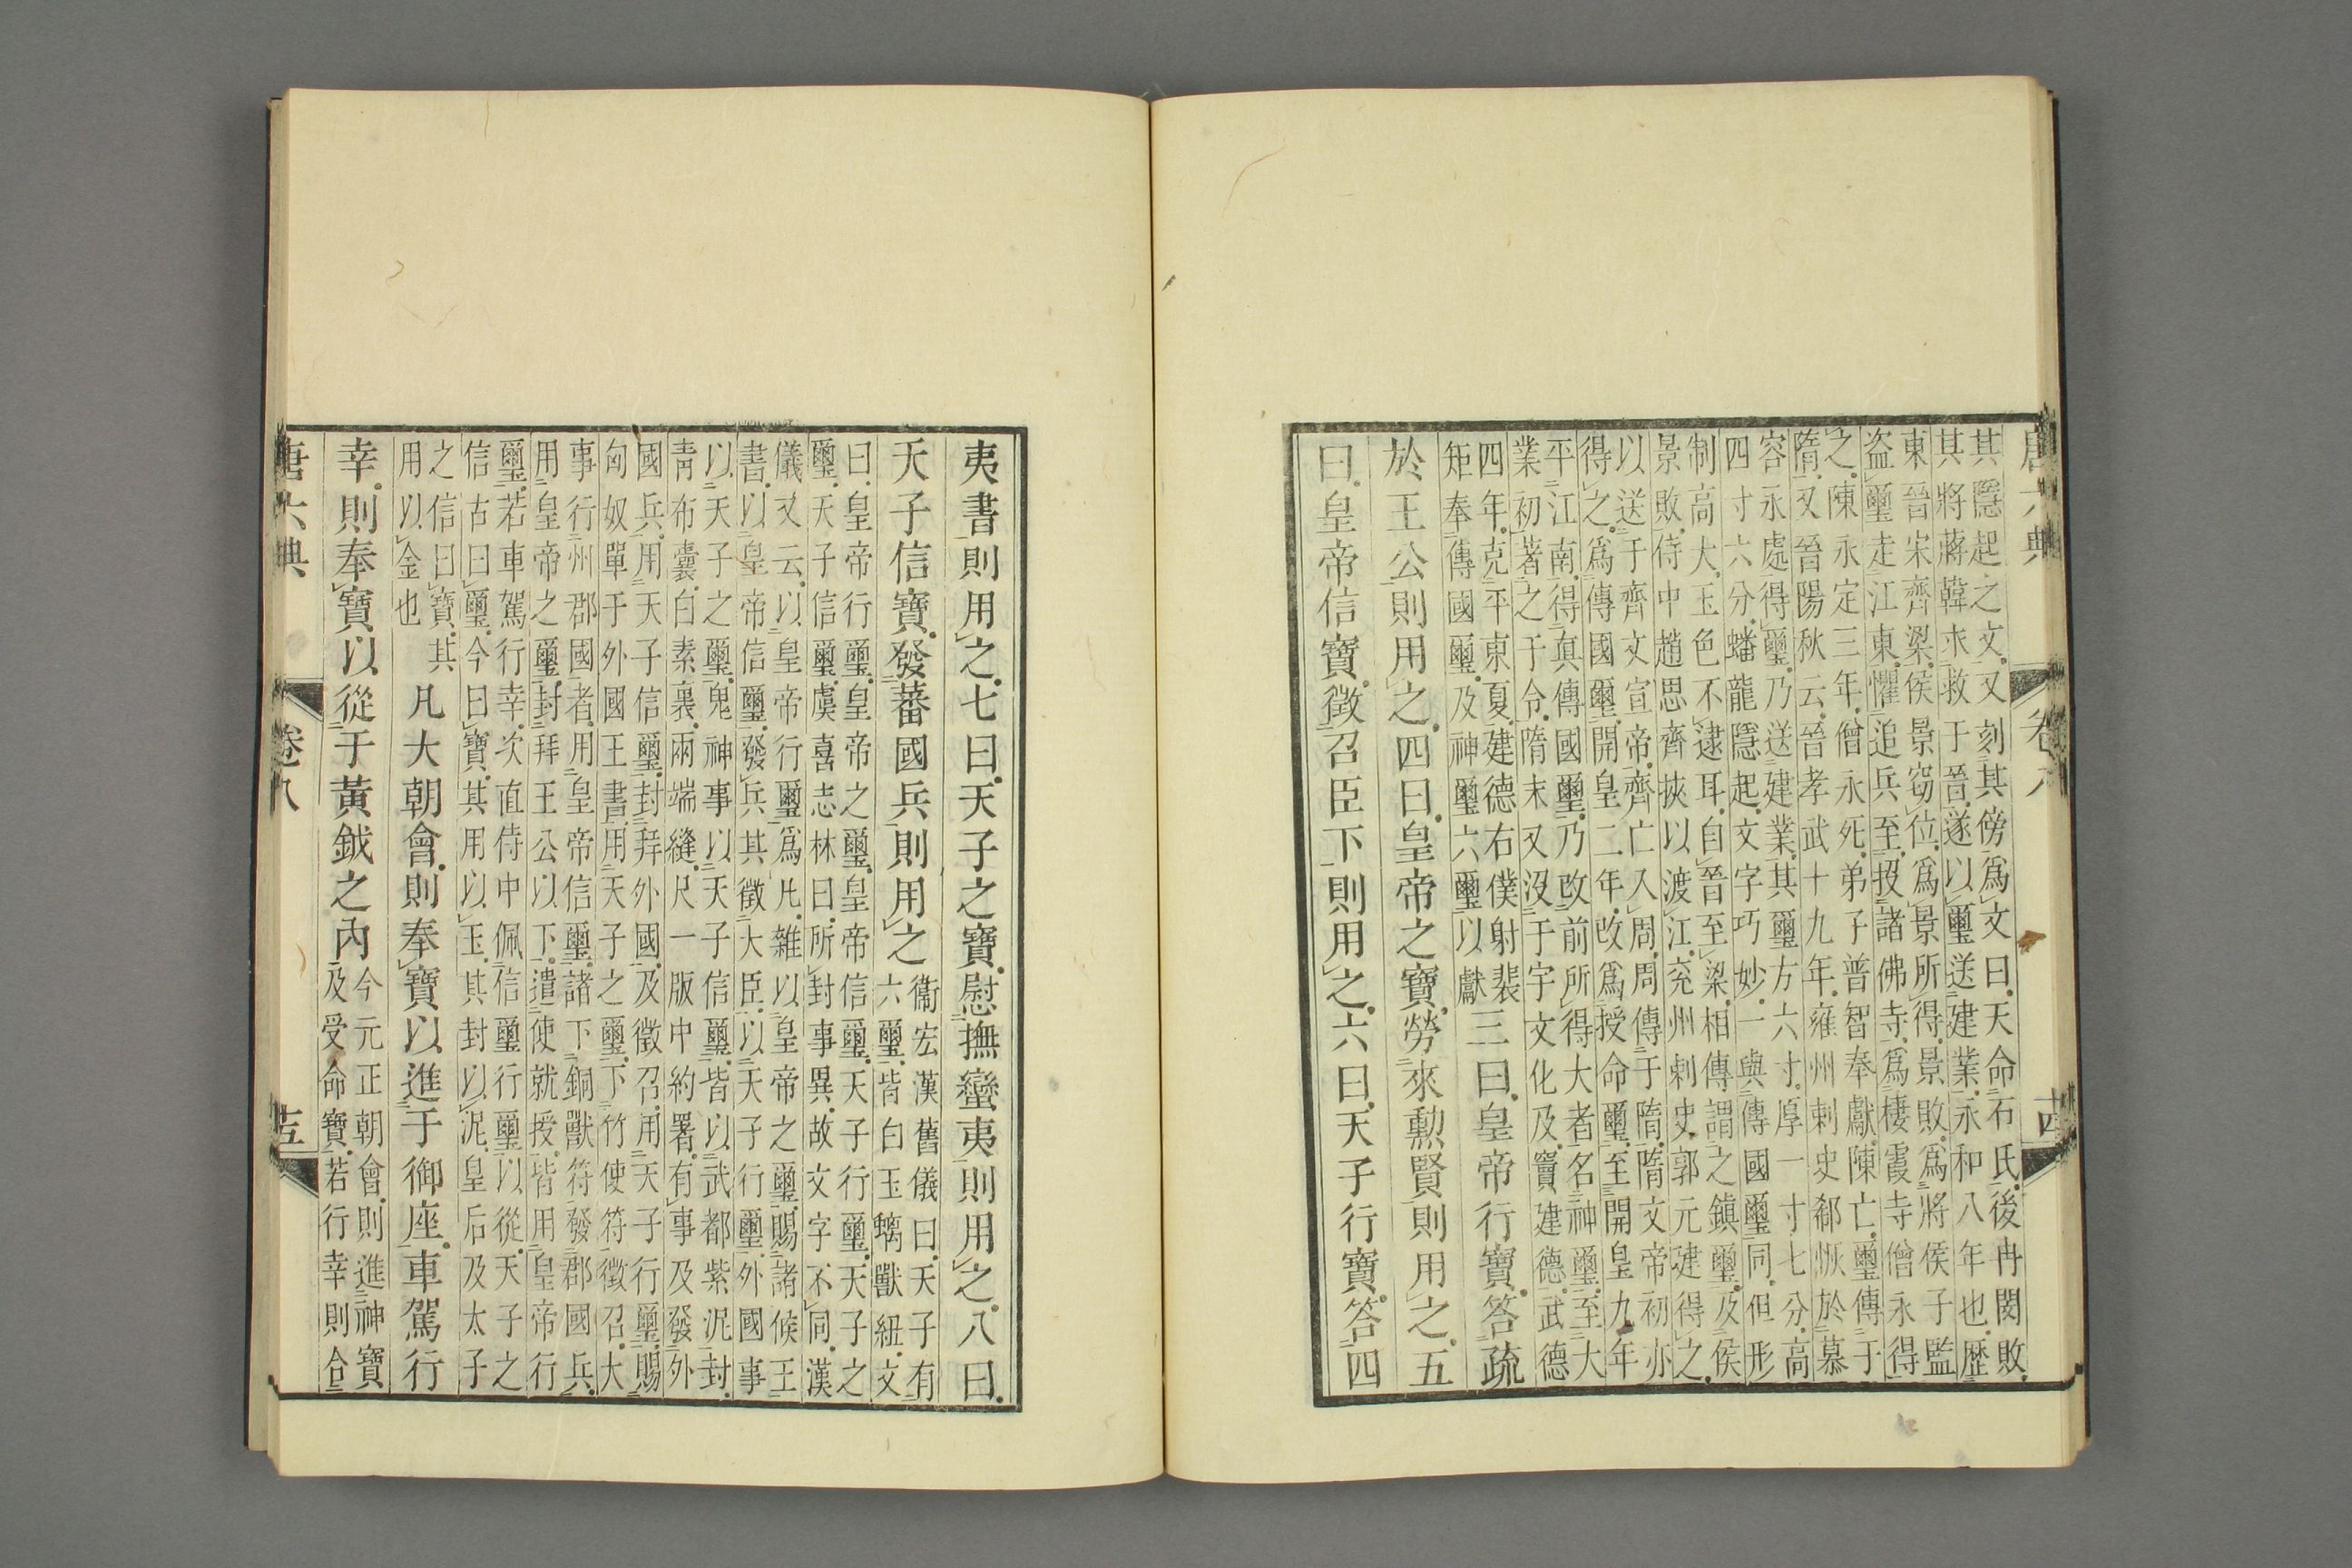 唐六典 卷八 十四
其隱起之文又刻其傍爲文曰天命石氏後冉閔敗
其將蔣韓求救于晉遂以璽送建業永和八年也歷
東晉宋齊梁侯景竊位爲景所得景敗爲將侯子監
盗璽走江東懼追兵至投諸佛寺爲棲霞寺僧永得
之陳永定三年僧永死弟子普智奉獻陳亡璽傳于
隋又晉陽秋云晉孝武十九年雍州刺史郗恢於慕
容永處得璽乃送建業其璽方六寸厚一寸七分高
四寸六分蟠龍隱起文字巧妙一與傳國璽同但形
制高大玉色不逮耳自晉至梁相傳謂之鎮璽及侯
景敗侍中趙思齊挾以渡江兗州刺史郭元建得之
以送于齊文宣帝齊亡入周周傳于隋隋文帝初亦
得之爲傳國璽開皇二年改爲授命璽至開皇九年
平江南得真傳國璽乃改前所得大者名神璽至大
業初著之于令隋末又沒于宇文化及竇建德武德
四年克平東夏建德右僕射裴
矩奉傳國璽及神璽六璽以獻
三曰皇帝行寶答疏
於王公則用之四曰皇帝之寶勞來勲賢則用之五
曰皇帝信寶徵召臣下則用之六曰天子行寶答四
夷書則用之七曰天子之寶慰撫蠻夷則用之八曰
天子信寶發蕃國兵則用之
衞宏漢舊儀曰天子有
六璽皆白玉螭獸紐文
曰皇帝行璽皇帝之璽皇帝信璽天子行璽天子之
璽天子信璽虞喜志林曰所封事異故文字不同漢
儀又云以皇帝行璽爲凡雜以皇帝之璽賜諸候王
書以皇帝信璽發兵其徵大臣以天子行璽外國事
以天子之璽鬼神事以天子信璽皆以武都紫泥封
青布囊白素裏兩端縫尺一版中約署有事及發外
國兵用天子信璽封拜外國及徵召用天子行璽賜
匈奴單于外國王書用天子之璽下竹使符徵召大
事行州郡國者用皇帝信璽諸下銅獸符發郡國兵
用皇帝之璽封拜王公以下遣使就授皆用皇帝行
璽若車駕行幸次直侍中佩信璽行璽以從天子之
信古曰璽今曰寶其用以玉其封以泥皇后及太子
之信曰寶其
用以金也
凡大朝會則奉寶以進于御座車駕行
幸則奉寶以從于黃鉞之內
今元正朝會則進神寶
及受命寶若行幸則合
唐六典 卷八 十五